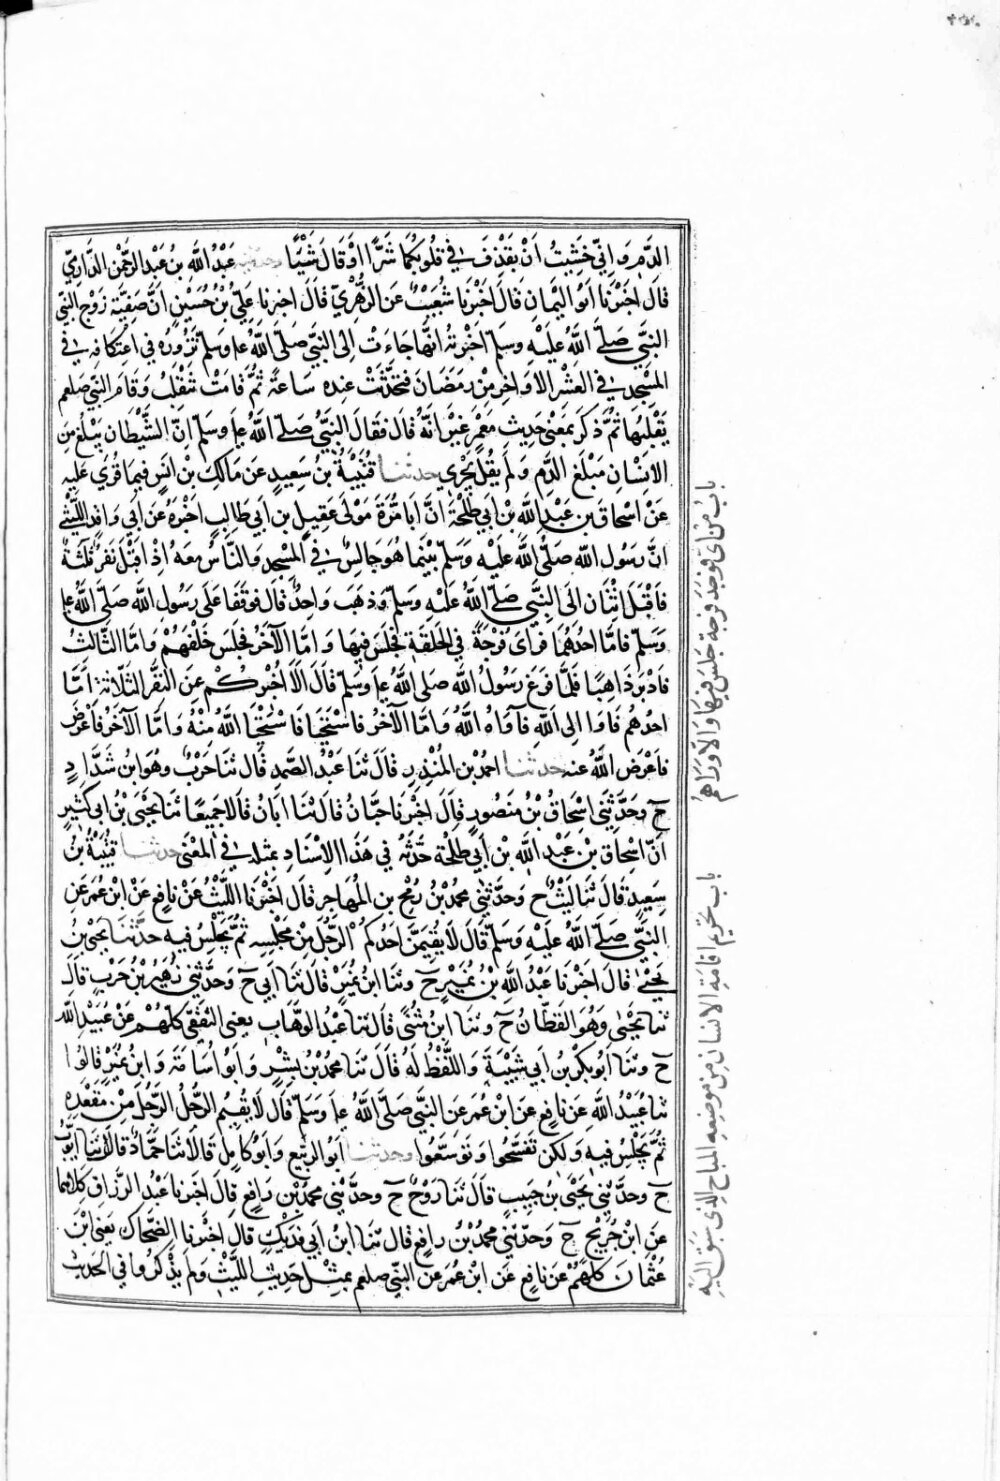 الدَّمِ وَاِنِّي خَشِيتُ اَنْ يَقْذِفَ فِي قُلُوبِكُمَا شَرًّا اَوْ قَالَ شَيْئًا وحدثنا عَبْدُ اللَّهِ بْنُ عَبْدِ الرَّحْمٰنِ الدَّارِمِيّ
قَالَ اَخْبَرَنَا اَبُو الْيَمَانِ قَالَ اَخْبَرَنَا شُعَيْبٌ عَنِ الزُّهْرِيِّ قَالَ اخبرنا عَلِيُّ بْنُ حُسَيْنٍ اَنَّ صَفِيَّةَ زَوْجَ النبي
النَّبِيِّ صَلَّى اللَّهُ عَلَيْهِ وَسَلَّم اَخْبَرَتْهُ اَنَّهَا جَاءَتْ اِلَى النَّبِيِّ صَلَّى اللَّهُ ع‍ﻠ وَسَلَّم تَزُورُهُ فِي اعْتِكَافِهِ فِي
الْمَسْجِدِ فِي الْعَشْرِ الاَوَاخِرِ مِنْ رَمَضَانَ فَتَحَدَّثَتْ عِنْدَهُ سَاعَةً ثُمَّ قَامَتْ تَنْقَلِبُ وَقَامَ النَّبِي صلعم
يَقْلِبُهَا ثُمَّ ذَكَرَ بِمَعْنَى حَدِيثِ مَعْمَرٍ غَيْرَ اَنَّهُ قَالَ فَقَالَ النَّبِيُّ صَلَّى اللَّهُ ع‍ﻠ وَسَلَّم اِنَّ الشَّيْطَان يَبْلُغُ مِنَ
الاِنْسَانِ مَبْلَغَ الدَّمِ وَلَمْ يَقُلْ يَجْرِي حدثنا قُتَيْبَةُ بْنُ سَعِيدٍ عَنْ مَالِكِ بْنِ اَنَسٍ فِيمَا قُرِيَ عَلَيْهِ
عَنْ اِسْحَاقَ بْنِ عَبْدِ اللَّهِ بْنِ اَبِي طَلْحَةَ اَنَّ اَبَا مُرَّةَ مَوْلَى عَقِيلِ بْنِ اَبِي طَالِبٍ اَخْبَرَهُ عَنْ اَبِي وَاقِدٍ اللَّيْثِي
اَنَّ رَسُولَ اللَّه صَلَّى اللَّهُ عَلَيْهِ وَسَلَّم بَيْنَمَا هُوَ جَالِسٌ فِي الْمَسْجِدِ وَالنَّاسُ مَعَهُ اِذْ اَقْبَلَ نَفَرٌ ثَلَثَةٌ
فَاَقْبَلَ اثْنَانِ اِلَى النَّبِيِّ صَلَّى اللَّهُ عَلَيْهِ وَسَلَّم وَذَهَبَ وَاحِدٌ قَالَ فَوَقَفَا عَلَى رَسُولِ اللَّه صَلَّى اللَّهُ ع‍ﻠ
وَسَلَّم فَامَّا اَحَدُهُمَا فَرَاَى فُرْجَةً فِي الْحَلْقَةِ فَجَلَسَ فِيهَا وَامَّا الآخَرُ فَجَلَسَ خَلْفَهُمْ وَامَّا الثَّالِثُ
فَاَدْبَرَ ذَاهِبًا فَلَمَّا فَرَغَ رَسُولُ اللَّه صَلَّى اللَّهُ ع‍ﻠ وَسَلَّم قَالَ اَلَا اُخْبِرُكُمْ عَنِ النَّفَرِ الثَّلَاثَةِ اَمَّا
اَحَدُهُمْ فَاَوَا اِلَى اللَّهِ فَآوَاهُ اللَّهُ وَامَّا الآخَرُ فَاسْتَحْيَا فَاسْتَحْيَا اللَّهُ مِنْهُ وَامَّا الآخَرُ فَاَعْرَضَ
فَاَعْرَضَ اللَّهُ عَنه حدثنا احمد بن الْمُنْذِرِ قَالَ ثَنَا عَبْدُ الصَّمَدِ قَالَ ثَنَا حَرْبٌ وَهُوَ ابْنُ شَدَّادٍ
ح وحَدَّثَنِي اِسْحَاقُ بْنُ مَنْصُورٍ قَالَ اَخْبَرَنَا حَبَّانُ قَالَ ثَنَا اَبَانُ قَالَا جَمِيعًا ثَنَا يَحْيَى بْنُ ابِي كَثِيرٍ
اَنَّ اِسْحَاقَ بْنَ عَبْدِ اللَّهِ بْنِ اَبِي طَلْحَة حَدَّثَهُ فِي هَذَا الاِسْنَادِ بمثله فِي الْمَعْنَى حدثنا قُتَيْبَةُ بْنُ
سَعِيدٍ قَالَ ثَنَا لَيْثٌ ح وَحَدَّثَنِي مُحَمَّدُ بْنُ رُمْحِ بْنِ الْمُهَاجِرِ قَالَ اَخْبَرَنَا اللَّيْثُ عَنْ نَافِعٍ عَنْ ابْنِ عُمَرَ عَنِ
النَّبِيِّ صَلَّى اللَّهُ عَلَيْهِ وَسَلَّم قَالَ لَا يُقِيمَنَّ اَحَدُكُم الرَّجُلَ مِنْ مَجْلِسِهِ ثُمَّ يَجْلِسُ فِيهِ حَدَّثَنَا يَحْيَى بْنُ
يَحْيَى قَالَ اَخْبَرَنَا عَبْدُ اللَّهِ بْنُ نُمَيْرٍ ح وَثَنَا ابْنُ نُمَيْرٍ قَالَ ثَنَا اَبِي ح وَحَدَّثَنِي زُهَيْرُ بْنُ حَرْبٍ قَالَ
ثَنَا يَحْيَى وَهُوَ الْقَطَّانُ ح وَثَنَا ابْنُ مُثَنَّى قَالَ ثَنَا عَبْدُ الْوَهَّابِ يعنى الثَّقَفِيّ كُلُّهُمْ عَنْ عُبَيْدِ اللَّه
ح وَثَنَا اَبُو بَكْرِ بْنِ اَبِي شَيْبَةَ وَاللَّفْظُ لَهُ قَالَ ثَنَا مُحَمَّدُ بْنُ بِشْرٍ وَاَبُو اُسَامَةَ وَابْنُ نُمَيْرٍ قَالُوا
ثَنَا عُبَيْدُ اللَّهِ عَنْ نَافِعٍ عَنْ ابْنِ عُمَرَ عَنِ النَّبِيِّ صَلَّى اللَّهُ ع‍ﻠ وَسَلَّم قَالَ لَا يُقِيمُ الرَّجُلُ الرَّجُلَ مِنْ مَقْعَدِهِ
ثُمَّ يَجْلِسُ فِيهِ وَلَكِنْ تَفَسَّحُوا وَتَوَسَّعُوا وحدثنا اَبُو الرَّبِيع وَاَبُو كَامِل قَالَا ثَنَا حَمَّادٌ قَالَ ثَنَا اَيُّوبُ
ح وَحَدَّثَنِي يَحْيَى بْنُ حَبِيبٍ قَالَ ثَنَا رَوْحٌ ح وحَدَّثَنِي مُحَمَّدُ بْنُ رَافِعٍ قَالَ اخبرنا عَبْدُ الرَّزَّاقِ كِلَاهُمَا
عَنِ ابْنِ جُرَيْجٍ ح وَحَدَّثَنِي مُحَمَّدُ بْنُ رافِعٍ قَالَ ثَنَا ابْنُ اَبِي فُدَيْكٍ قَالَ اَخْبَرَنَا الضَّحَّاكُ يَعْنِي ابْنَ
عُثْمَانَ كُلُّهُمْ عَنْ نَافِعٍ عَنِ ابْنِ عُمَرَ عَنِ النَّبِيِّ صلعم بِمِثْلِ حَدِيثِ اللَّيْثِ وَلَمْ يَذْكُرُوا فِي الْحَدِيثِ
باب من اتى فوجد فرجة جلس فيها والا وراهم
باب تحريم اقامة الانسان من موضعه المباح الذى سبق اليه